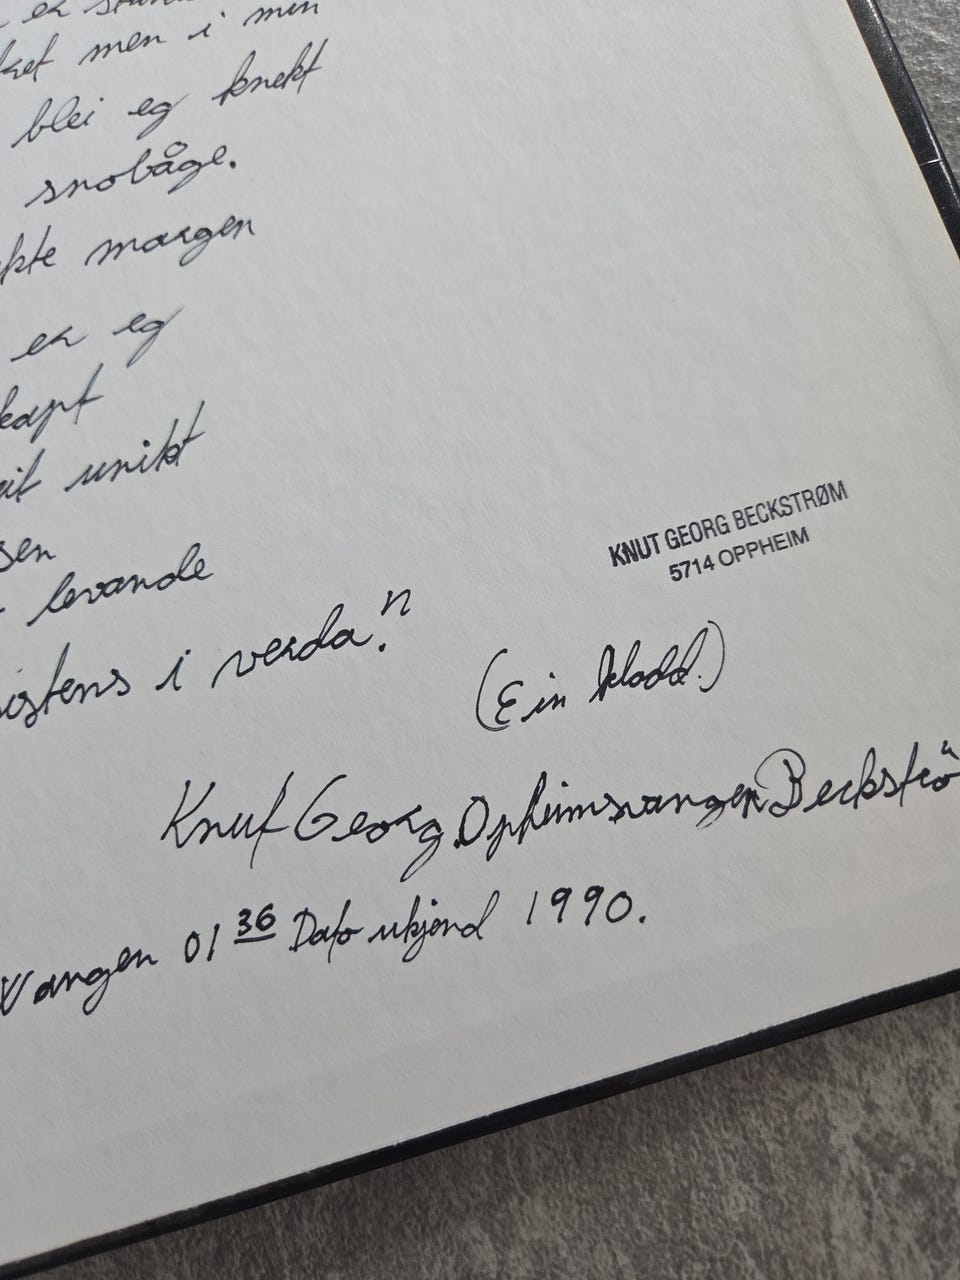 er
ket men i min
blei eg knekt
snobåge.
kte margen
er eg
kapt
eit unikt
sen
levande
istens i verda."
KNUT GEORG BECKSTRØM
5714 OPPHEIM
(Ein kladd.)
Knut Georg Opheimsvangen Beckströ
Vangen 01 36 Dato ukjend 1990.